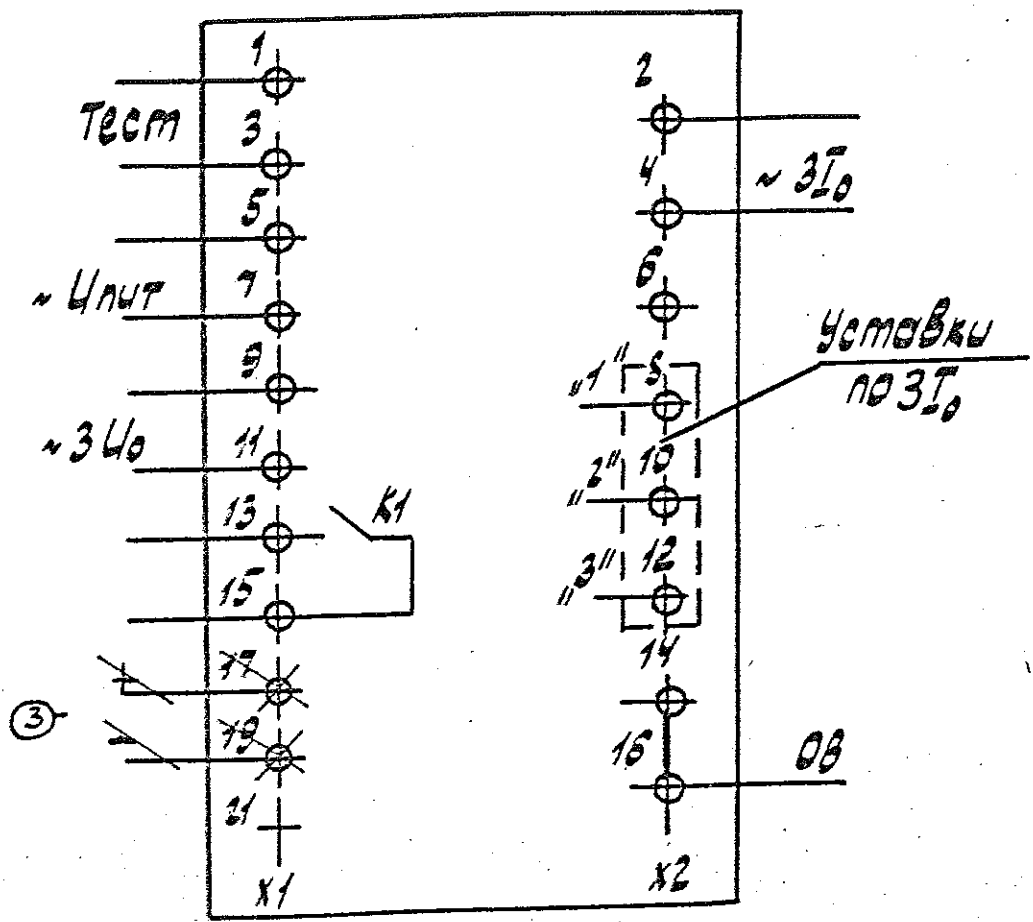 1
Тест
3
5
~ Uпит
7
9
~ 3Uо
11
13
К1
15
17
3
19
21
X1
2
4
~ 3I₀
6
Уставки
по 3I₀
"1"
8
"2"
10
"3"
12
14
16
0В
X2